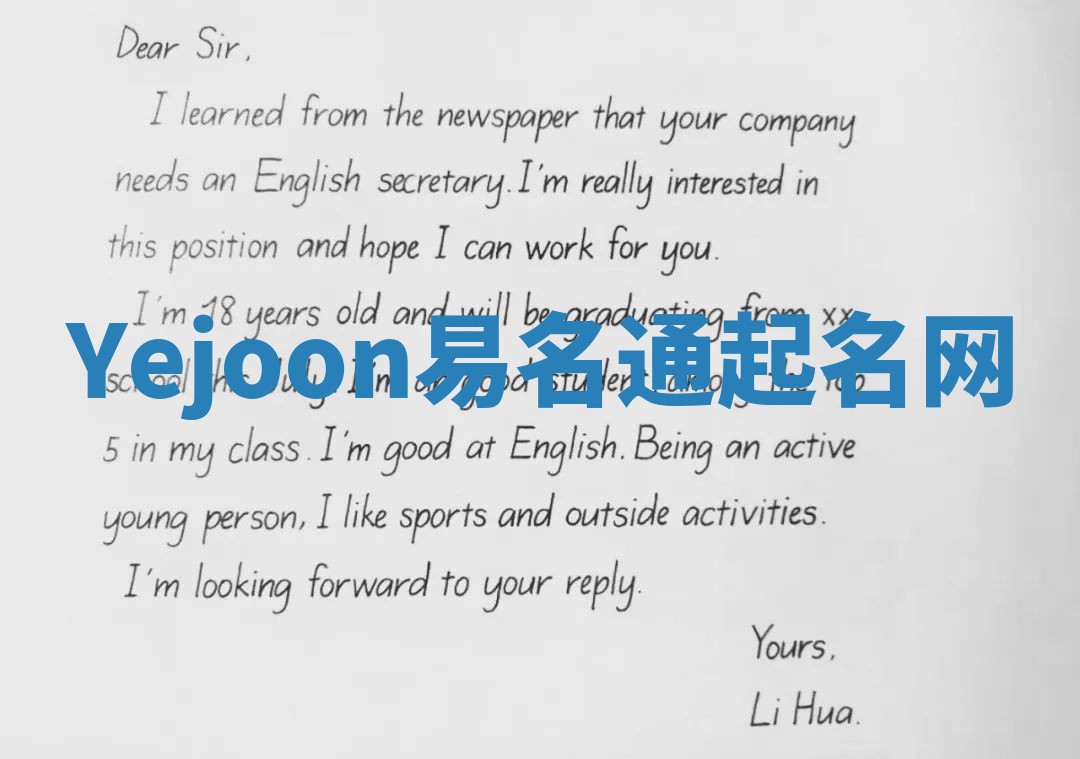 Dear Sir,
I learned from the newspaper that your company
needs an English secretary. I'm really interested in
this position and hope I can work for you.
I'm 18 years old and will be graduating from xx
Yejoon易名通起名网
school this July. I'm a good student among the top
5 in my class. I'm good at English. Being an active
young person, I like sports and outside activities.
I'm looking forward to your reply.
Yours,
Li Hua.